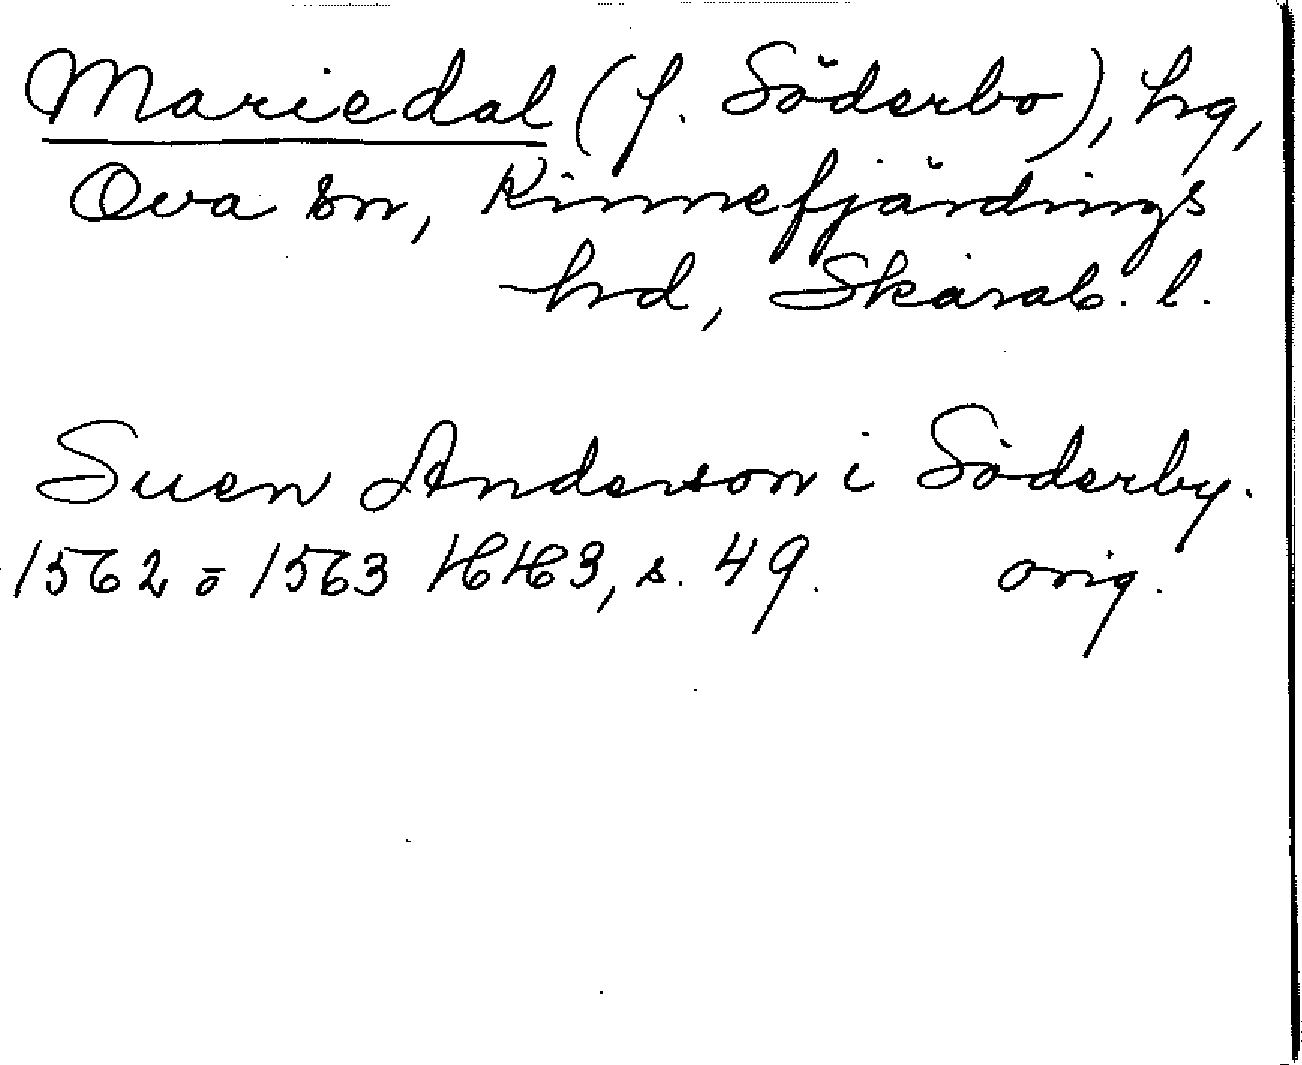 Mariedal (f. Söderbo), hg,
Ova sn, Kinnefjärdings
hrd, Skarab. l.
Suen Anderson i Söderby.
1562 o 1563 HH3, s. 49. orig.